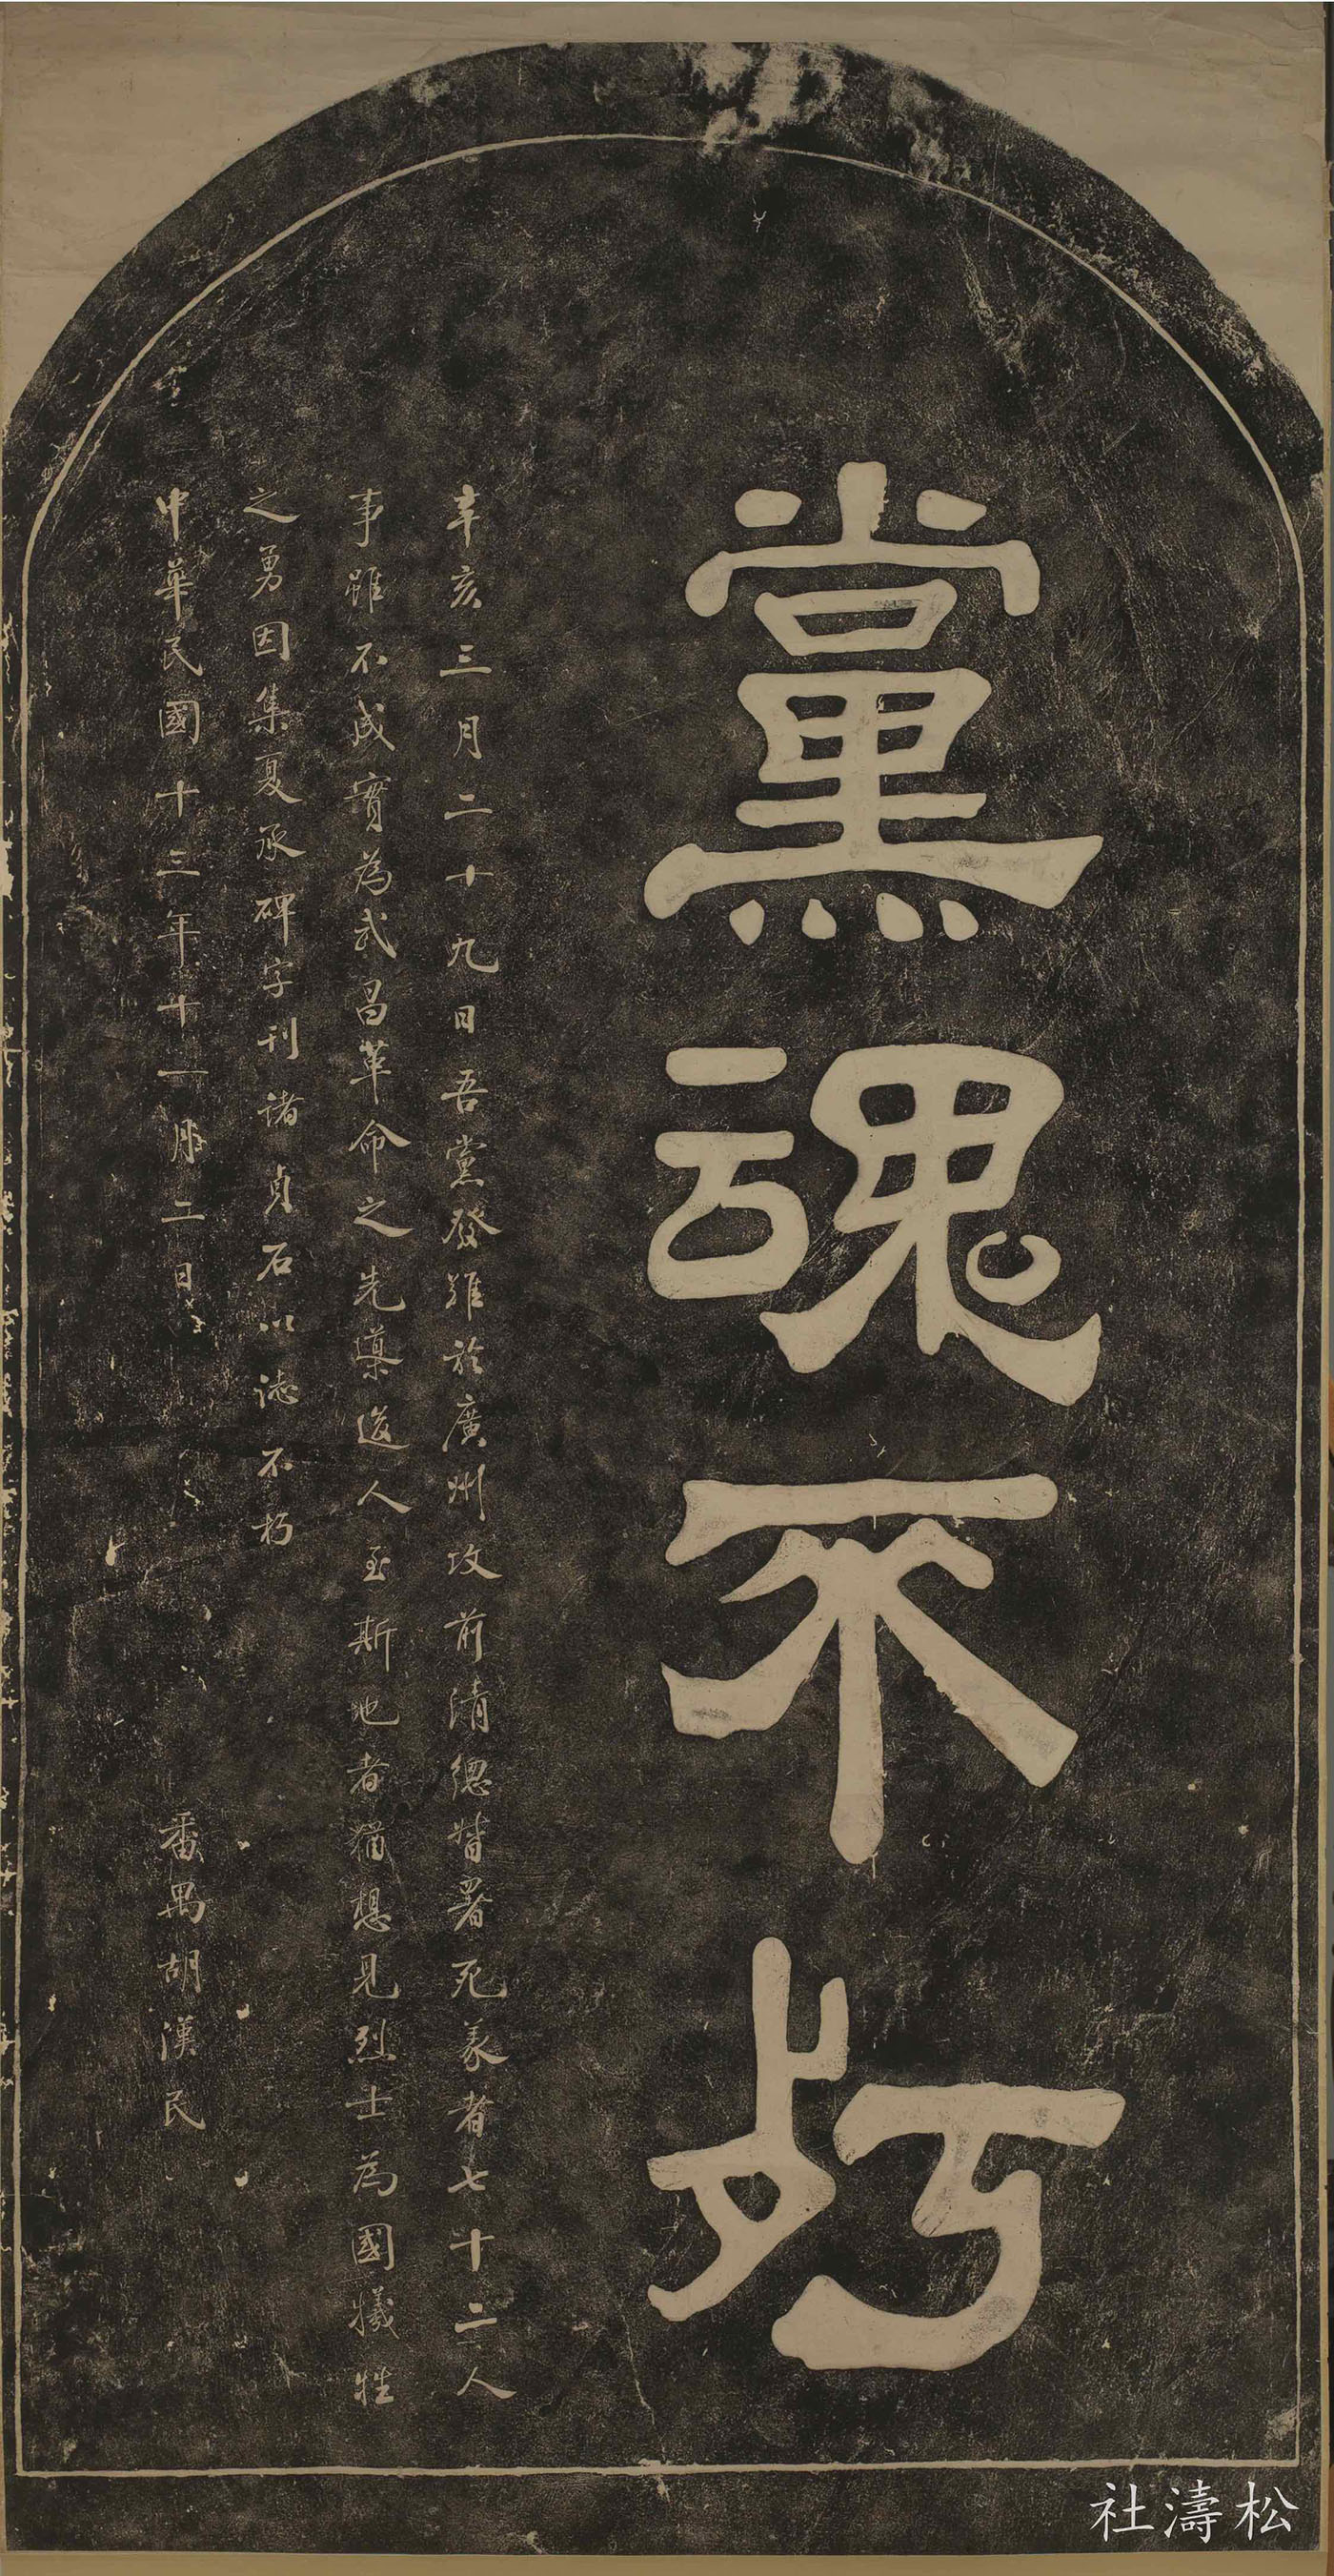 黨魂不朽
辛亥三月二十九日吾黨發難於廣州攻前清總督署死義者七十二人
事雖不成實為武昌革命之先導後人至斯地者猶想見烈士為國犧牲
之勇因集夏承碑字刊諸貞石以誌不朽
中華民國十三年十一月二日
番禺胡漢民
松濤社